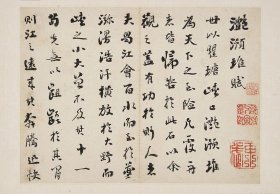 灩澦堆賦
世以瞿塘峽口灩澦堆
為天下之至險凡覆舟
者皆歸咎於此石以余
觀之蓋有功於斯人者
夫蜀江會百水而至於夔
瀰漫浩汗橫放於大野而
峽之小大曾不及其十一
苟先無以齟齬於其間
則江之遠來奔騰迅快